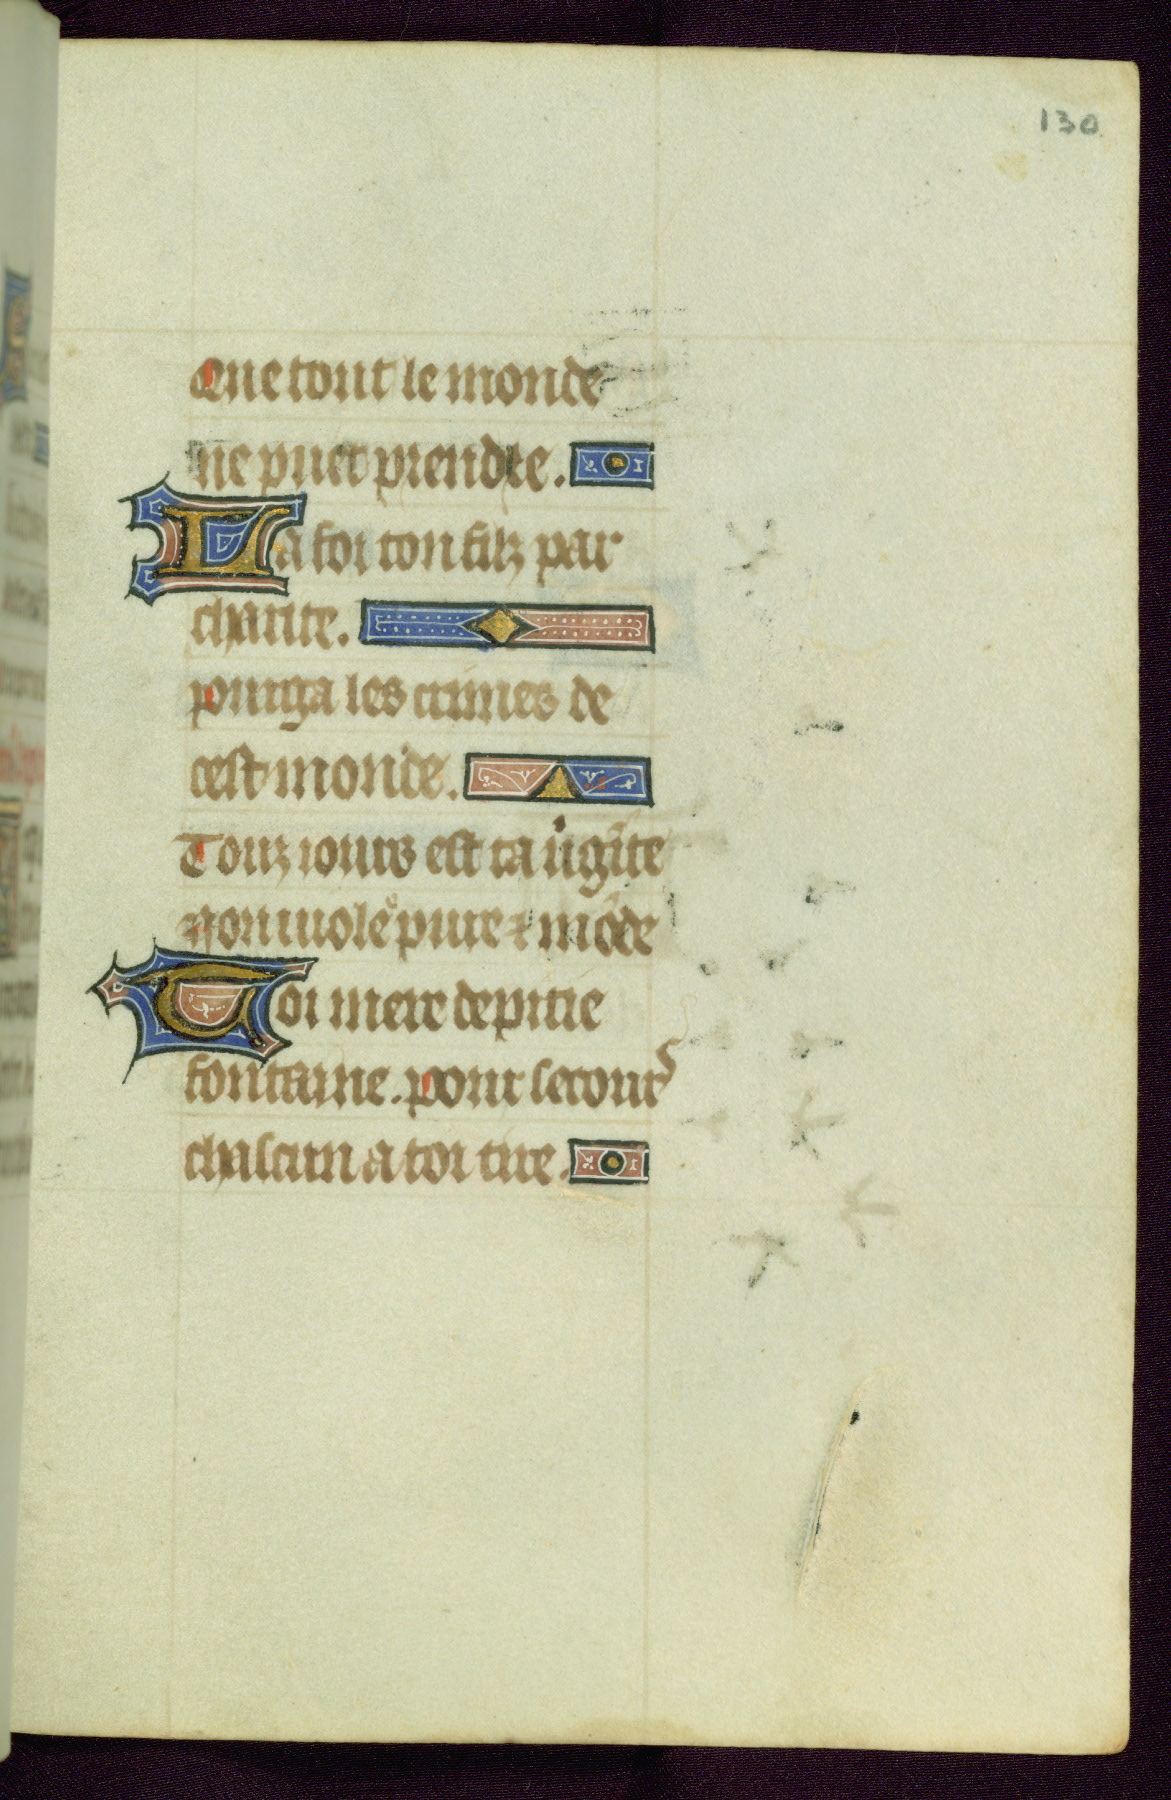 130
Que tout le monde
ne puet prendre.
La foi ton filz par
charite.
pourga les crimes de
cest monde.
Touz iours est ta u͛gĩte
Non uiolee͛ pure ⁊ mõde
Toi mere de pitie
fontaine. pour secours
chascun a toi tire.